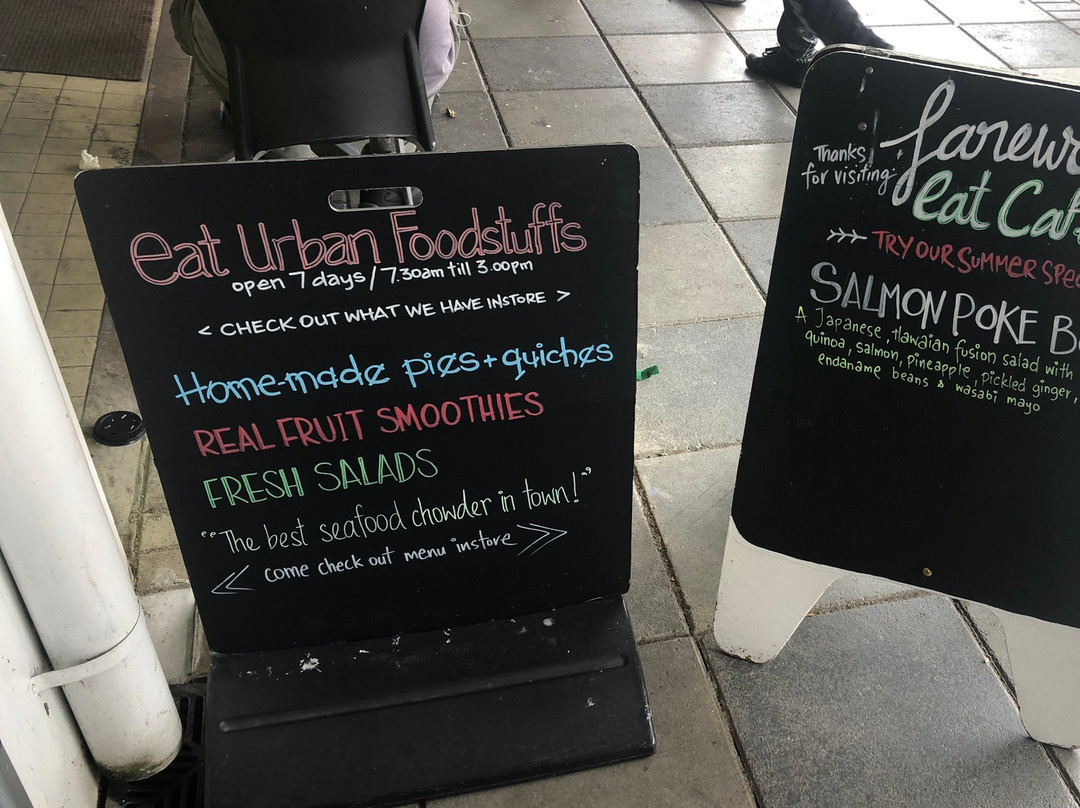 eat Urban Foodstuffs
open 7 days / 7.30am till 3.00pm
< CHECK OUT WHAT WE HAVE INSTORE >
Home-made pies + quiches
REAL FRUIT SMOOTHIES
FRESH SALADS
"The best seafood chowder in town!"
come check out menu instore
Thanks
for visiting
eat
TRY OUR SUMMER
SALMON POKE
A Japanese, Hawaian fusion salad with
quinoa, salmon, pineapple, pickled ginger,
endaname beans & wasabi mayo